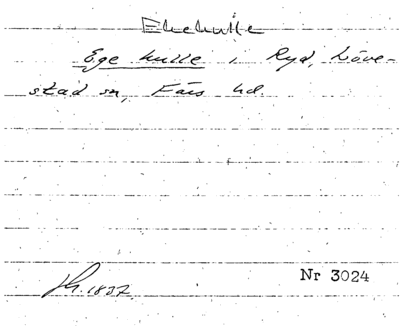 Ekekulle
Ege kulle i Ryd, Löve-
stad sn, Färs hd.
Nr 3024
1837